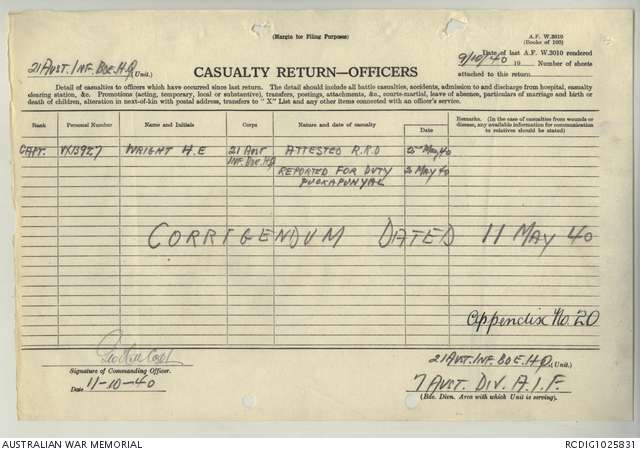 (Margin for Filing Purposes)
A.F. W.3010
(Books of 100)
21 AUST. INF. BDE. H.Q. (Unit.)
CASUALTY RETURN—OFFICERS
Date of last A.F. W.3010 rendered
9/10/40 19 Number of sheets
attached to this return.
Detail of casualties to officers which have occurred since last return. The detail should include all battle casualties, accidents, admission to and discharge from hospital, casualty
clearing station, &c. Promotions (acting, temporary, local or substantive), transfers, postings, attachments, &c., courts-martial, leave of absence, particulars of marriage and birth or
death of children, alteration in next-of-kin with postal address, transfers to "X" List and any other items connected with an officer's service.
Rank Personal Number Name and Initials Corps Nature and date of casualty Date Remarks. (In the case of casualties from wounds or
disease, any available information for communication
to relatives should be stated)
CAPT. VX13927 WRIGHT H.E 21 AUST ATTESTED R.R.D MAY 40
INF. BDE. H.Q REPORTED FOR DUTY 2 MAY 40
PUCKAPUNYAL
CORRIGENDUM DATED 11 MAY 40
Appendix No. 20
Signature of Commanding Officer.
Date 11-10-40
21 AUST. INF. BDE. H.Q. (Unit.)
7 AUST. DIV. A.I.F.
(Bde. Divn. Area with which Unit is serving).
AUSTRALIAN WAR MEMORIAL
RCDIG1025831